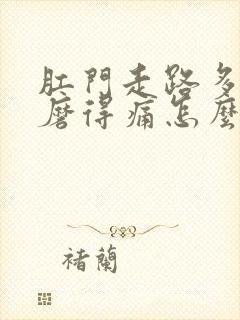 肛門走路多
磨得痛怎麼
褚蘭